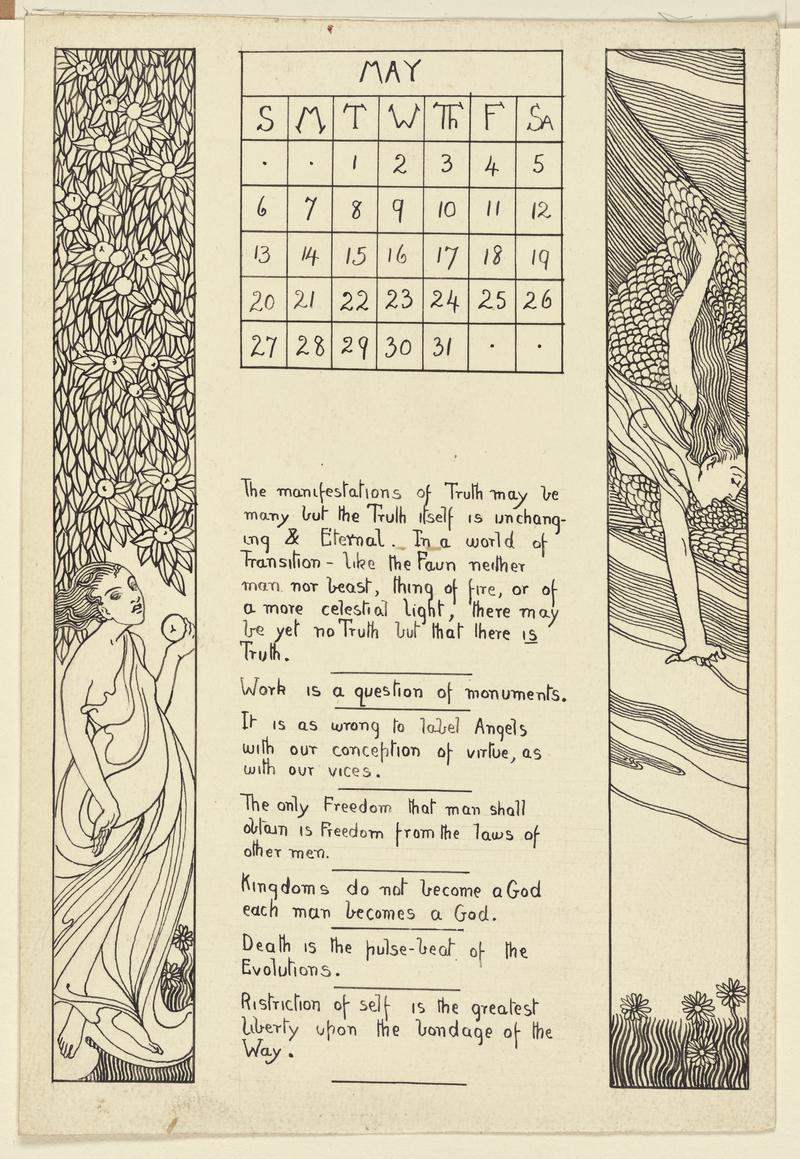 MAY
S M T W Th F SA
· · 1 2 3 4 5
6 7 8 9 10 11 12
13 14 15 16 17 18 19
20 21 22 23 24 25 26
27 28 29 30 31 · ·
The manifestations of Truth may be
many but the Truth itself is unchang-
ing & Eternal. In a world of
Transition - like the Faun neither
man nor beast, thing of fire, or of
a more celestial light, there may
be yet no Truth but that there is
Truth.
Work is a question of monuments.
It is as wrong to label Angels
with our conception of virtue, as
with our vices.
The only Freedom that man shall
obtain is Freedom from the laws of
other men.
Kingdoms do not become a God
each man becomes a God.
Death is the pulse-beat of the
Evolutions.
Ristriction of self is the greatest
liberty upon the bondage of the
Way.